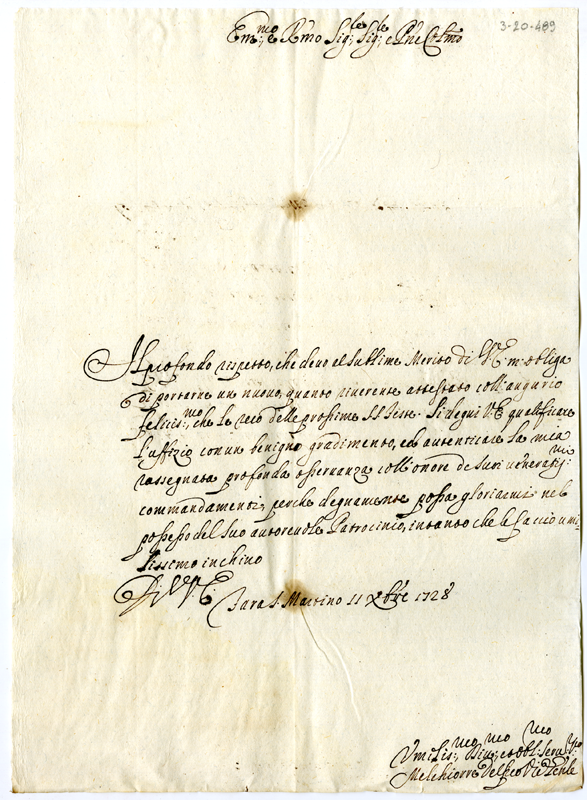 3-20-489
Em:mo e Rmo Sig:le Sig:le e Pne Colmo
Il profondo rispetto, che devo al sublime Merito di V.E. m'obliga
di portarne un nuovo, quanto riverente attestato coll'augurio
felicis:mo che le reco delle prossime SS. feste. Si degni V.E. qualificare
l'uffizio con un benigno gradimento, ed autenticare la mia
rassegnata profonda osservanza coll'onore de suoi veneratis:mi
commandamenti, perche degnamente possa gloriarmi nel
possesso del suo autorevole Patrocinio, intanto che le faccio umi=
lissimo inchino
Di V.E.
Jara S. Martino 11 Xbre 1728
Umilis:mo Div:mo et Obl:mo Seru:re
Melchiorre Delfico Vic Genle